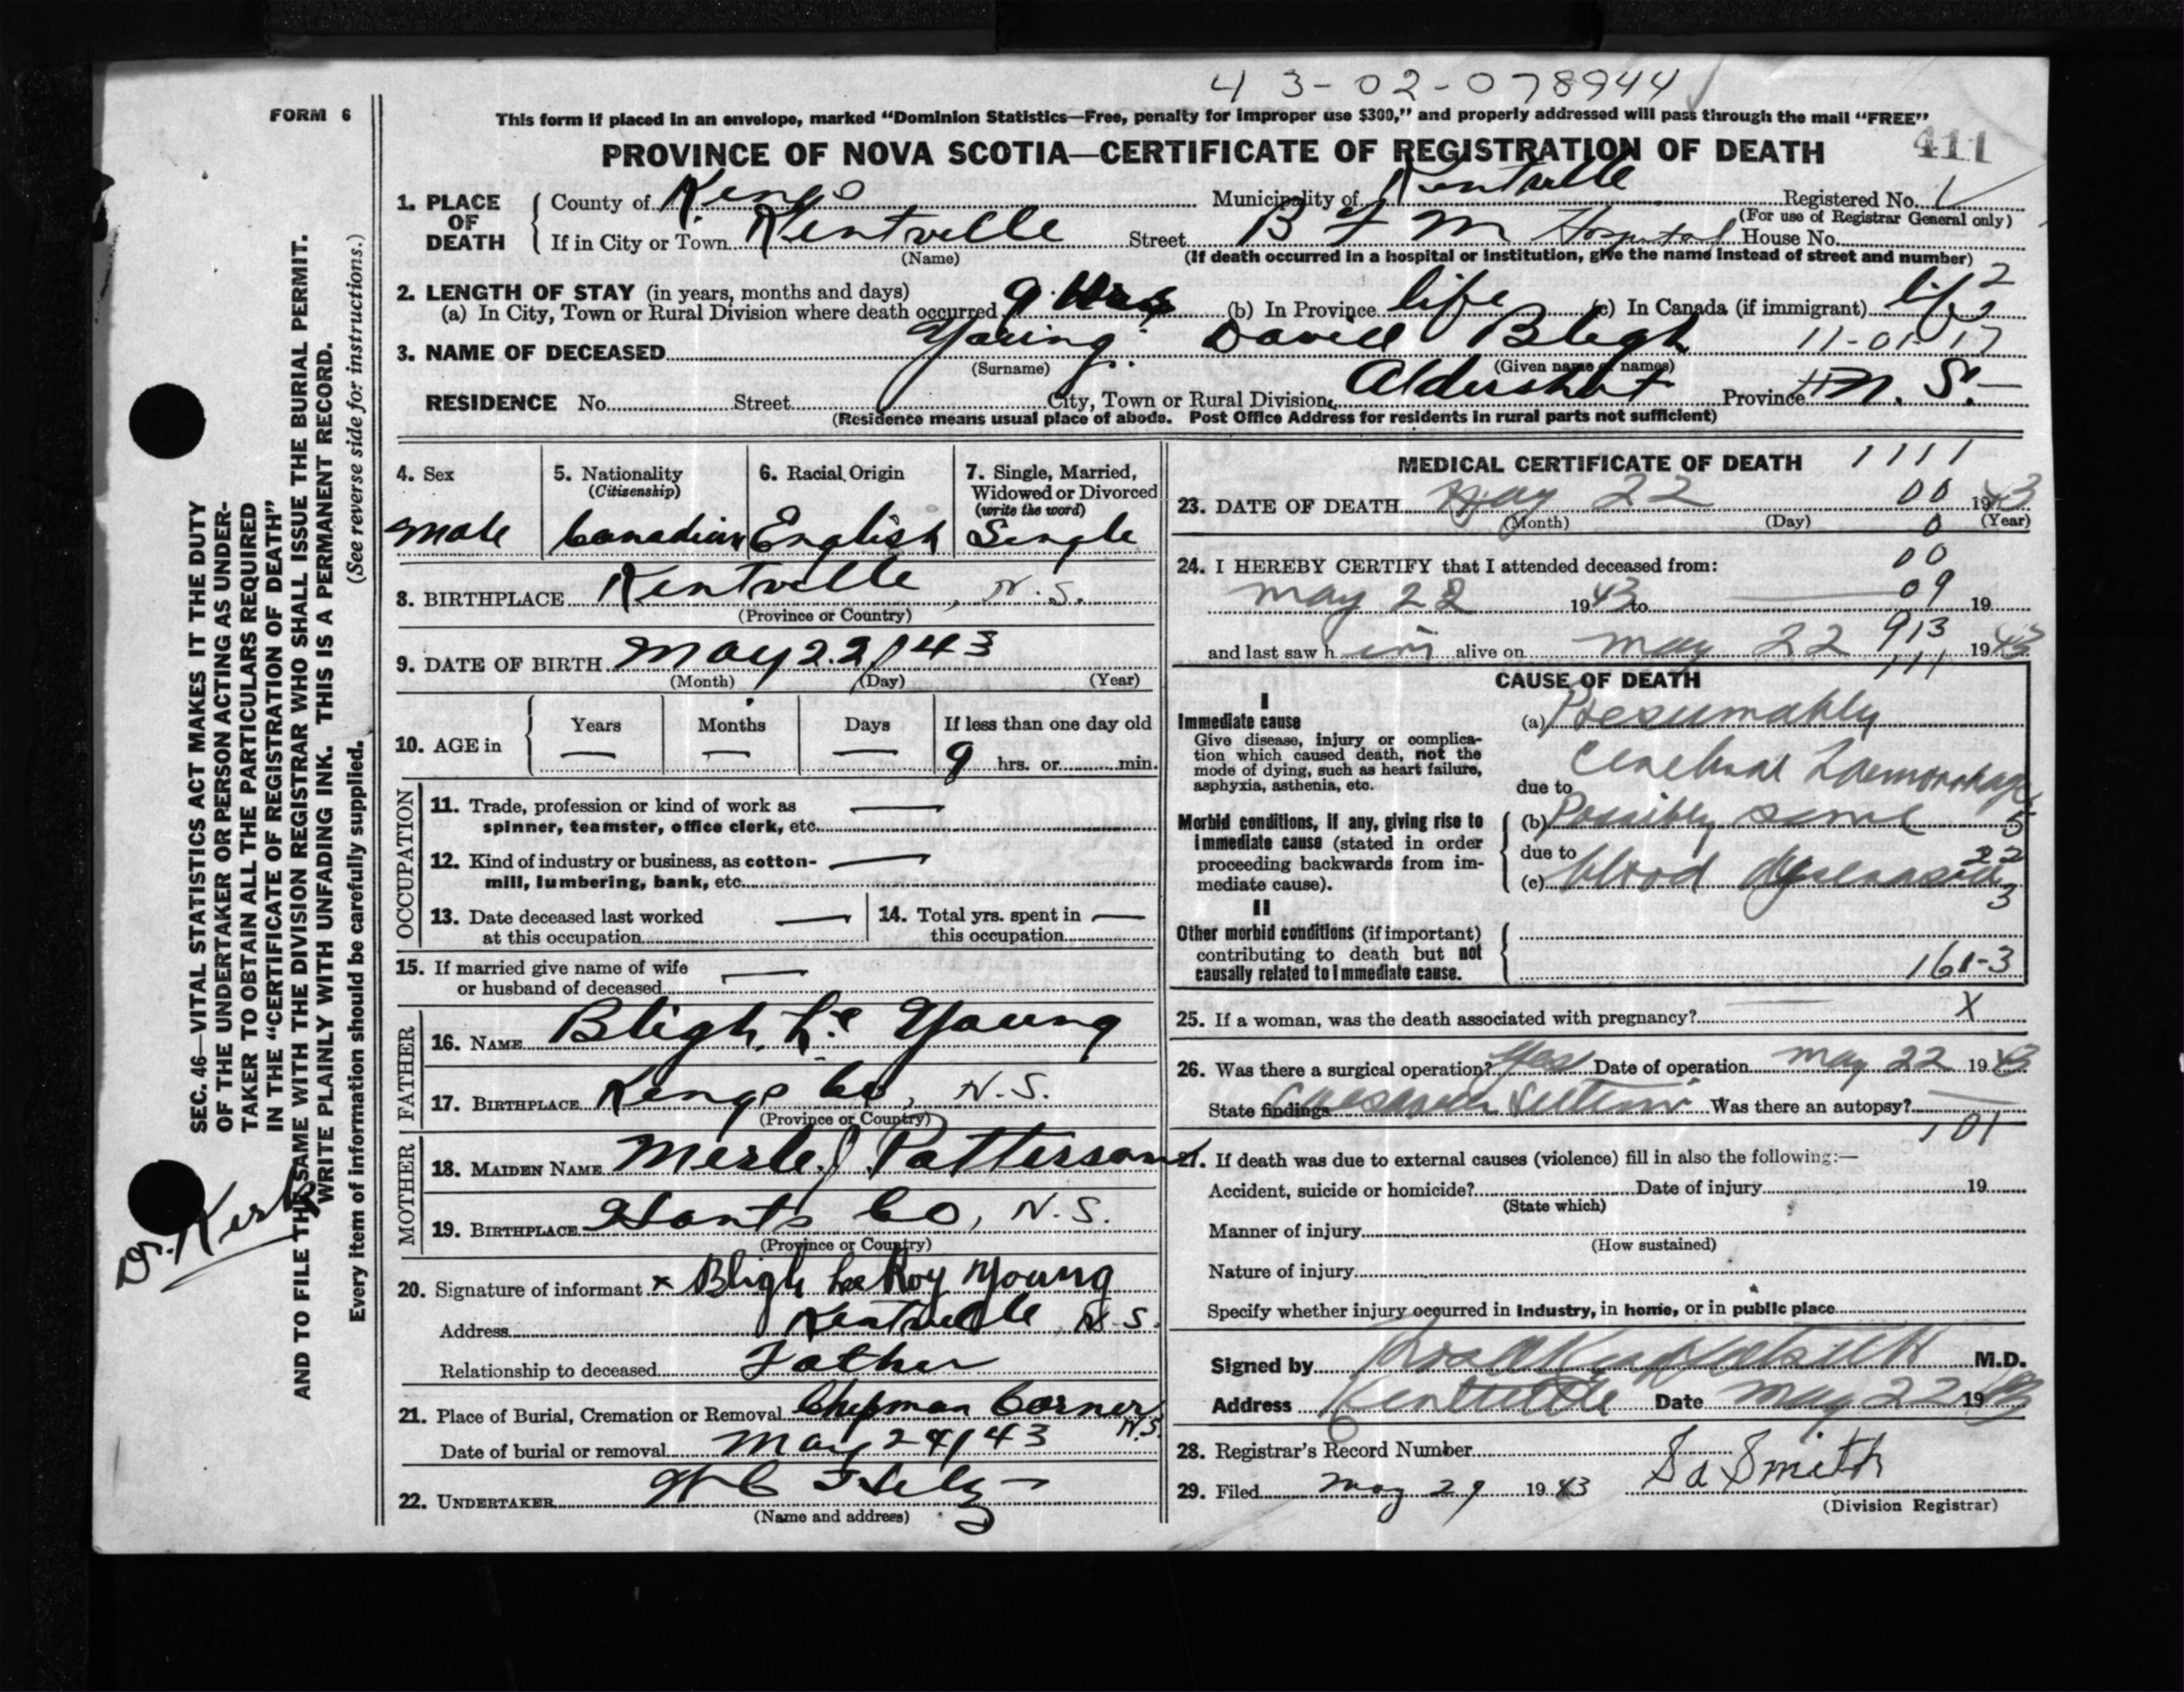 43-02-078944
FORM 6
This form if placed in an envelope, marked “Dominion Statistics—Free, penalty for improper use $300,” and properly addressed will pass through the mail “FREE”
PROVINCE OF NOVA SCOTIA—CERTIFICATE OF REGISTRATION OF DEATH 411
1. PLACE OF DEATH
County of Kings Municipality of Kentville Registered No.
(For use of Registrar General only)
If in City or Town Kentville Street B F M Hospital House No.
(Name) (If death occurred in a hospital or institution, give the name instead of street and number)
2. LENGTH OF STAY (in years, months and days)
(a) In City, Town or Rural Division where death occurred 9 Hrs (b) In Province life (c) In Canada (if immigrant) life 2
3. NAME OF DECEASED Young David Bligh 11-01-17
(Surname) (Given name or names)
RESIDENCE No. Street City, Town or Rural Division Aldershot Province N. S.
(Residence means usual place of abode. Post Office Address for residents in rural parts not sufficient)
4. Sex Male
5. Nationality (Citizenship) Canadian
6. Racial Origin English
7. Single, Married, Widowed or Divorced (write the word) Single
8. BIRTHPLACE Kentville, N.S.
(Province or Country)
9. DATE OF BIRTH May 22/43
(Month) (Day) (Year)
10. AGE in
Years Months Days If less than one day old
— — — 9 hrs. or min.
OCCUPATION
11. Trade, profession or kind of work as —
spinner, teamster, office clerk, etc.
12. Kind of industry or business, as cotton- —
mill, lumbering, bank, etc.
13. Date deceased last worked —
at this occupation
14. Total yrs. spent in —
this occupation
15. If married give name of wife —
or husband of deceased
FATHER
16. NAME Bligh L. Young
17. BIRTHPLACE Kings Co, N.S.
(Province or Country)
MOTHER
18. MAIDEN NAME Merle J. Patterson
19. BIRTHPLACE Hants Co, N.S.
(Province or Country)
20. Signature of informant x Bligh Lee Roy Young
Address Kentville, N.S.
Relationship to deceased Father
21. Place of Burial, Cremation or Removal Chipman Corner N.S.
Date of burial or removal May 24/43
22. UNDERTAKER
(Name and address)
MEDICAL CERTIFICATE OF DEATH 1111
23. DATE OF DEATH May 22 00 1943
(Month) (Day) 0 (Year)
24. I HEREBY CERTIFY that I attended deceased from: 00
May 22 1943 to — 09 19
and last saw him alive on May 22 913 1943
111
CAUSE OF DEATH
I
Immediate cause
Give disease, injury or complica-
tion which caused death, not the
mode of dying, such as heart failure,
asphyxia, asthenia, etc.
(a) Presumably
Cerebral Haemorrhage
due to
Morbid conditions, if any, giving rise to
immediate cause (stated in order
proceeding backwards from im-
mediate cause).
(b) Possibly some 5
due to 22
(c) blood 3
II
Other morbid conditions (if important)
contributing to death but not
causally related to immediate cause.
161-3
25. If a woman, was the death associated with pregnancy? X
26. Was there a surgical operation? Yes Date of operation May 22 1943
State findings Caesarean Section Was there an autopsy? —
101
27. If death was due to external causes (violence) fill in also the following:—
Accident, suicide or homicide? Date of injury 19
(State which)
Manner of injury
(How sustained)
Nature of injury
Specify whether injury occurred in industry, in home, or in public place
Signed by M.D.
Address Kentville Date May 22 1943
28. Registrar's Record Number
29. Filed May 29 1943 Smith
(Division Registrar)
SEC. 46—VITAL STATISTICS ACT MAKES IT THE DUTY
OF THE UNDERTAKER OR PERSON ACTING AS UNDER-
TAKER TO OBTAIN ALL THE PARTICULARS REQUIRED
IN THE “CERTIFICATE OF REGISTRATION OF DEATH”
AND TO FILE THE SAME WITH THE DIVISION REGISTRAR WHO SHALL ISSUE THE BURIAL PERMIT.
WRITE PLAINLY WITH UNFADING INK. THIS IS A PERMANENT RECORD.
Every item of information should be carefully supplied. (See reverse side for instructions.)
Dr.